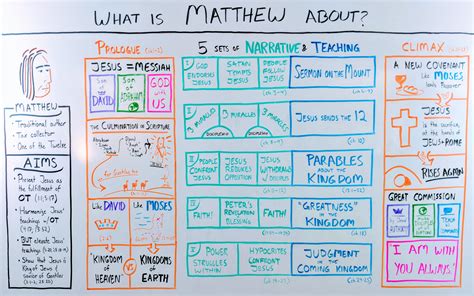 WHAT IS MATTHEW ABOUT?
MATTHEW
Traditional author
Tax collector
One of the Twelve
AIMS
Present Jesus as
the fulfillment of
OT
Harmonize Jesus'
teachings w/
OT
BUT elevate Jesus'
teachings
Show that Jesus is
King of Jews &
savior of Gentiles
PROLOGUE
JESUS = MESSIAH
Son of DAVID
Son of ABRAHAM
GOD WITH US
THE CULMINATION OF SCRIPTURE
Like DAVID
Like MOSES
KINGDOM OF HEAVEN
VS
KINGDOMS OF EARTH
5 SETS OF NARRATIVE & TEACHING
I
GOD ENDORSES JESUS
SATAN TEMPTS JESUS
PEOPLE FOLLOW JESUS
SERMON ON THE MOUNT
3 MIRACLES
DISCIPLESHIP
3 MIRACLES
DISCIPLESHIP
3 MIRACLES
JESUS SENDS THE 12
PEOPLE CONFRONT JESUS
JESUS REBUKES OPPOSITION
JESUS WITHDRAWS
PARABLES
ABOUT THE
KINGDOM
FAITH!
PETER'S REVELATION BLESSING
FAITH!
"GREATNESS"
IN THE
KINGDOM
POWER STRUGGLES
HYPOCRITES CONFRONT JESUS
JUDGMENT
OF THE
COMING KINGDOM
CLIMAX
A NEW COVENANT
Like MOSES
JESUS
is the sacrifice,
at the hands of
JEWS + ROME
RISES AGAIN
GREAT COMMISSION
I AM WITH
YOU ALWAYS!